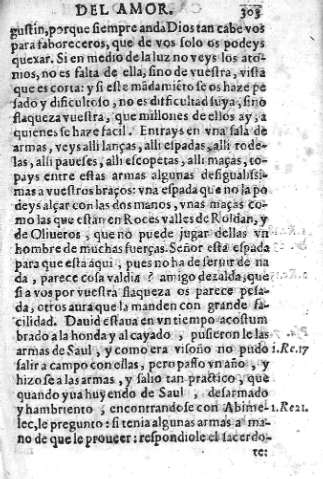 DEL AMOR. 303
gustin, porque siempre anda Dios tan cabe vos
para faboreceros, que de vos solo os podeys
quexar. Si en medio de la luz no veys los ato-
mios, no es falta de ella, sino de vuestra, vista
que es corta: y si este mãdamiẽto se os haze pe
sado y dificultoso, no es dificultad suya, sino
flaqueza vuestra, que millones de ellos ay, a
quienes se haze facil. Entrays en vna sala de
armas, veys alli lanças, alli espadas, alli rode-
las, alli paueses, alli escopetas, alli maças, to-
pays entre estas armas algunas desigualissi-
mas a vuestros braços: vna espada que no la po
deys alçar con las dos manos, vnas maças co-
mo las que estan en Roces valles de Roldan, y
de Oliueros, que no puede jugar dellas vn
hombre de muchas fuerças. Señor esta espada
para que esta aqui, pues no ha de seruir de na
da, parece cosa valdia? amigo dexalda, que
si a vos por vuestra flaqueza os parece pesa-
da, otros aura que la manden con grande fa-
cilidad. Dauid estaua en vn tiempo acostum
brado a la honda y al cayado, pusieron le las
armas de Saul, y como era visoño no pudo 1.Re.17
salir a campo con ellas, pero passo vn año, y
hizose a las armas, y salio tan practico, que
quando yua huyendo de Saul, desarmado
y hambriento, encontrandose con Abime- 1.Re21.
lec, le pregunto: si tenia algunas armas a ma-
no de que le proueer: respondiole el sacerdo-
te: